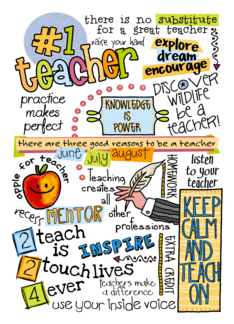 there is no substitute
for a great teacher
#1
teacher
raise your hand
explore
dream
encourage
practice
makes
perfect
KNOWLEDGE
IS
POWER
DISCOVER
WILDLIFE
be a
teacher!
there are three good reasons to be a teacher
june july august
apple for teacher
Teaching
creates
all
other
professions
HOMEWORK
listen
to your
teacher
recess
MENTOR
KEEP
CALM
AND
TEACH
ON
2 teach
is
INSPIRE
2 touch lives
4 ever
EXTRA CREDIT
teachers make
a difference
use your inside voice